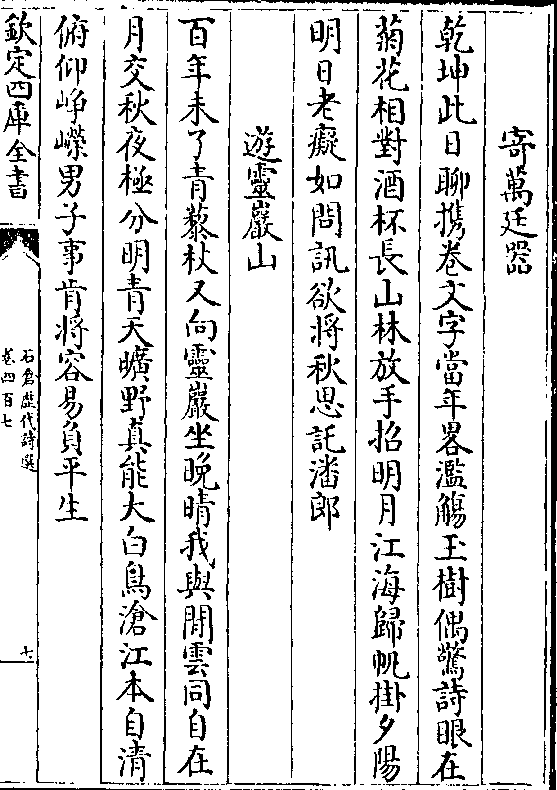 寄萬廷器
乾坤此日聊携卷文字當年畧濫觴玉樹偶驚詩眼在
菊花相對酒杯長山林放手招明月江海歸帆掛夕陽
明日老癡如問訊欲將秋思託潘郎
遊靈巖山
百年未了青藜杖又向靈巖坐晚晴我與閒雲同自在
月交秋夜極分明青天曠野真能大白鳥滄江本自清
俯仰崢嶸男子事肯將容易負平生
欽定四庫全書
石倉歷代詩選
卷四百七
七